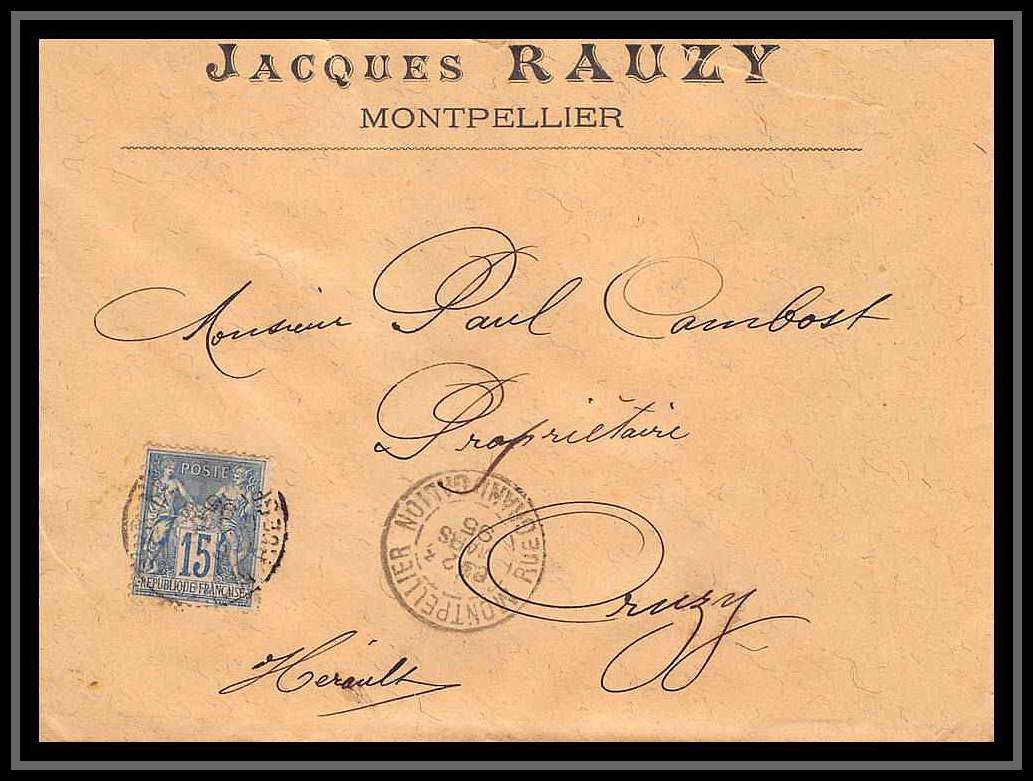 JACQUES RAUZY
MONTPELLIER
Monsieur Paul Cambost
Propriétaire
Cruzy
Hérault
POSTE
15
REPUBLIQUE FRANÇAISE
MONTPELLIER
RUE